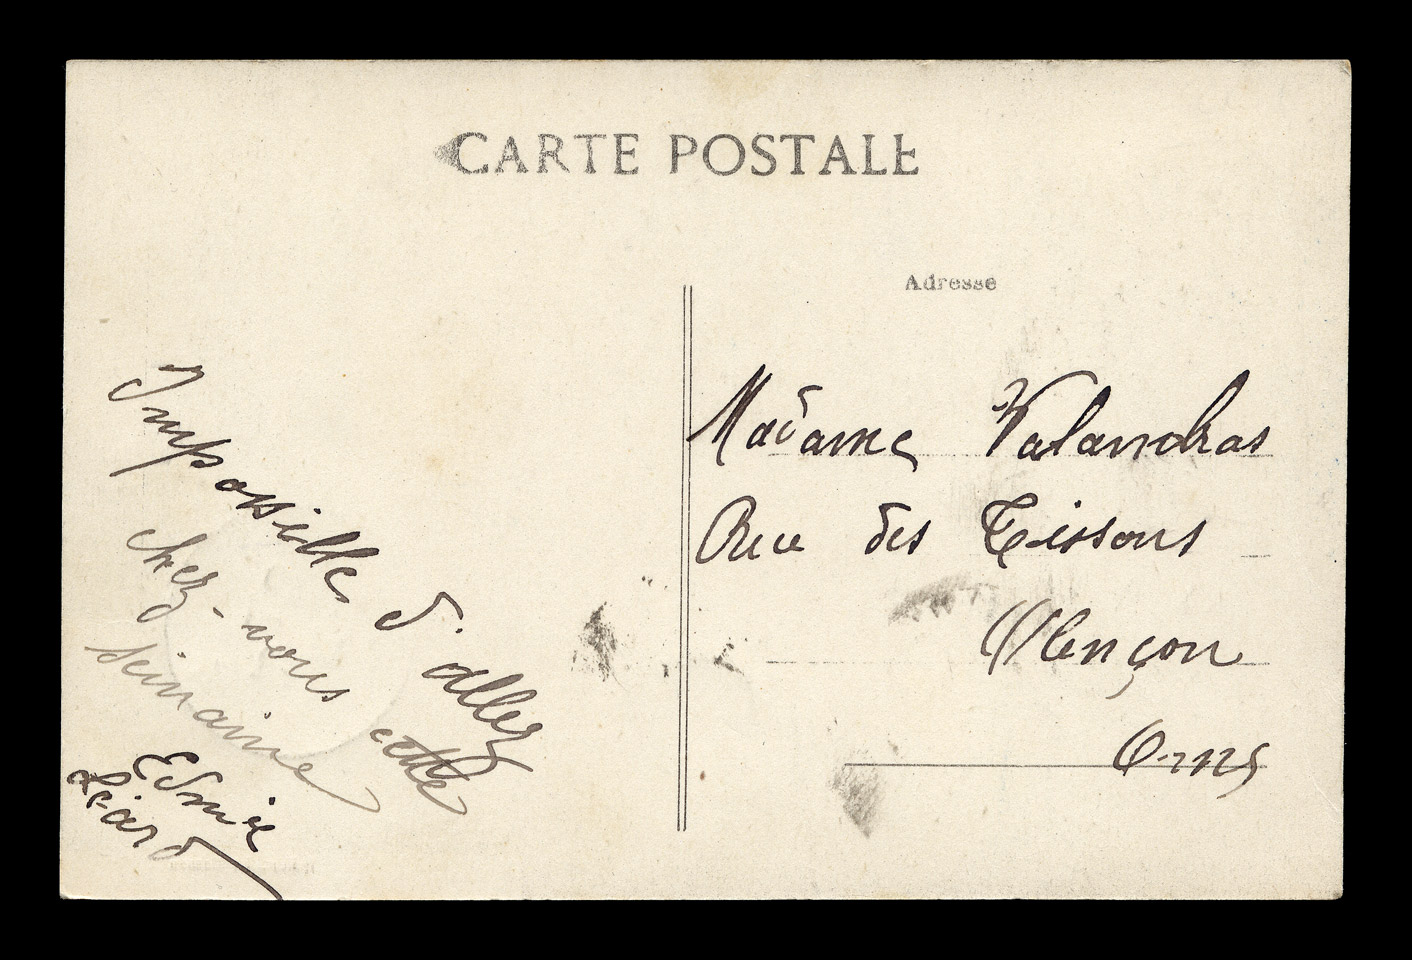 CARTE POSTALE
Adresse
Impossible d'allez
chez-vous cette
semaine
Edmie
Léard
Madame Valandras
Rue des Tissons
Alençon
Orne